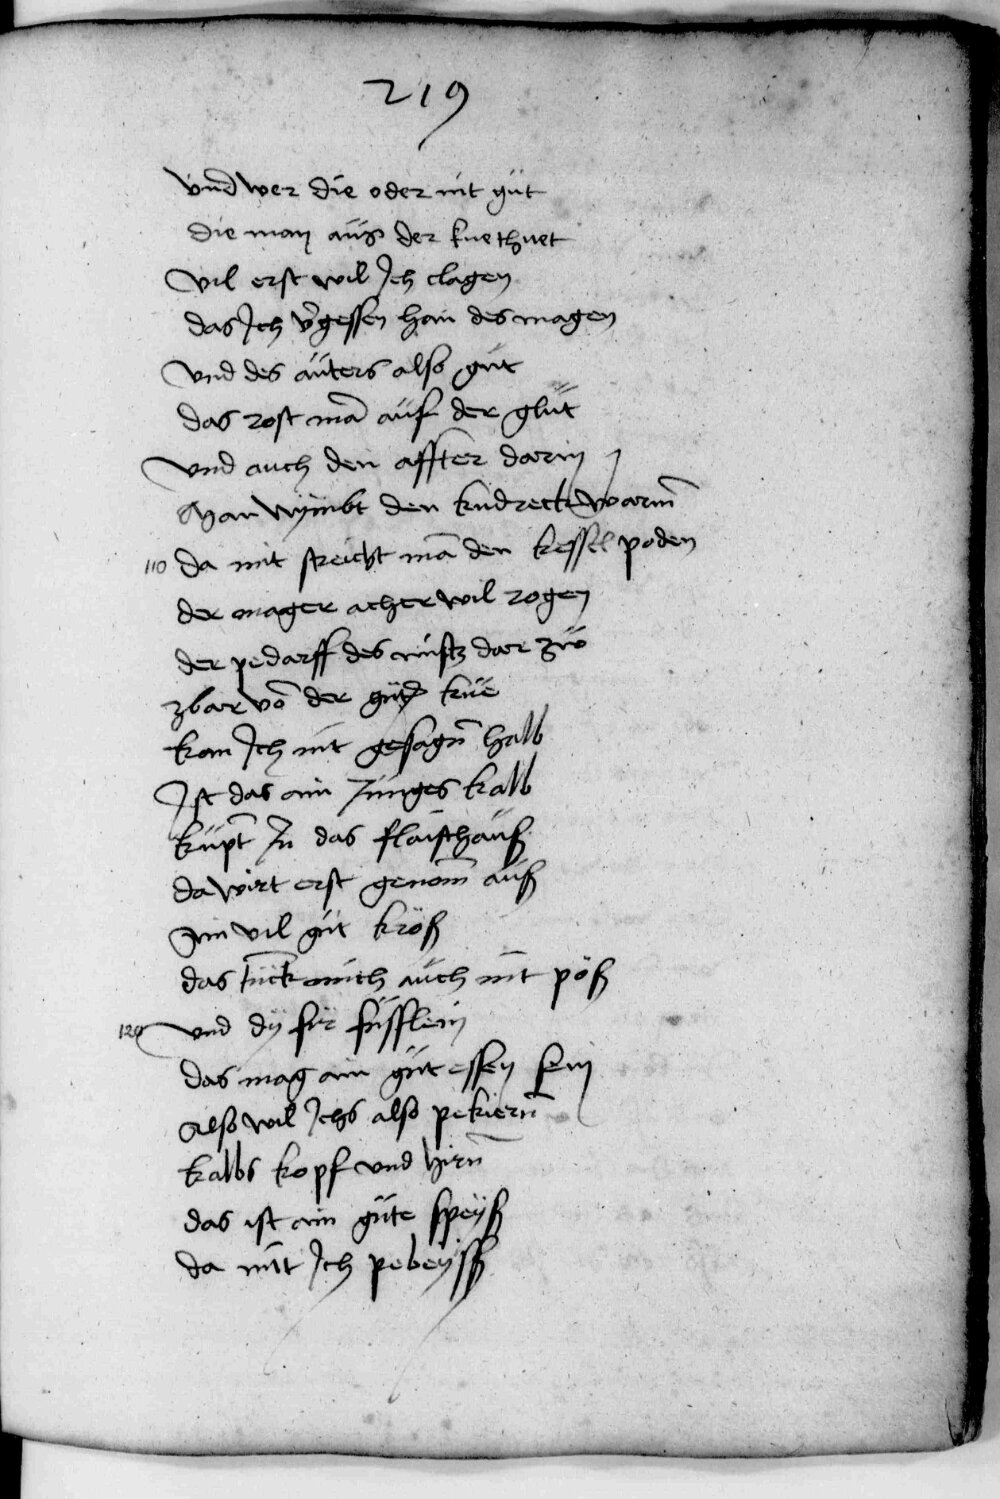 219
vnd wer die oder nit güt
die man aüs der kuethuet
vil erst wil Ich clagen
das Ich v̄gessen han des magen
vnd des aüters also güt
das rost mā aüf der glüt
vnd auch den affter darin
Man nymbt den kudreck warm̄
110 da mit streicht mā den kessel poden
der mager acher wil rogen
der pedarff des mistz dar zü
zbar vō der gütn̄ küe
kan Ich nit gesagn̄ halb
Ist das ain Junges kalb
küpt̄ In das flaischhaüß
da wirt erst genom̄ aüß
Ain vil güt kröß
das tünckt mich auch nit pöß
120 vnd dÿ fir füsslein
das mag ain güt essen sein
Also wil Ichs also pekiern̄
kalbs kopf vnd hirn̄
das ist ain güte speÿß
da mit Ich pebeÿß